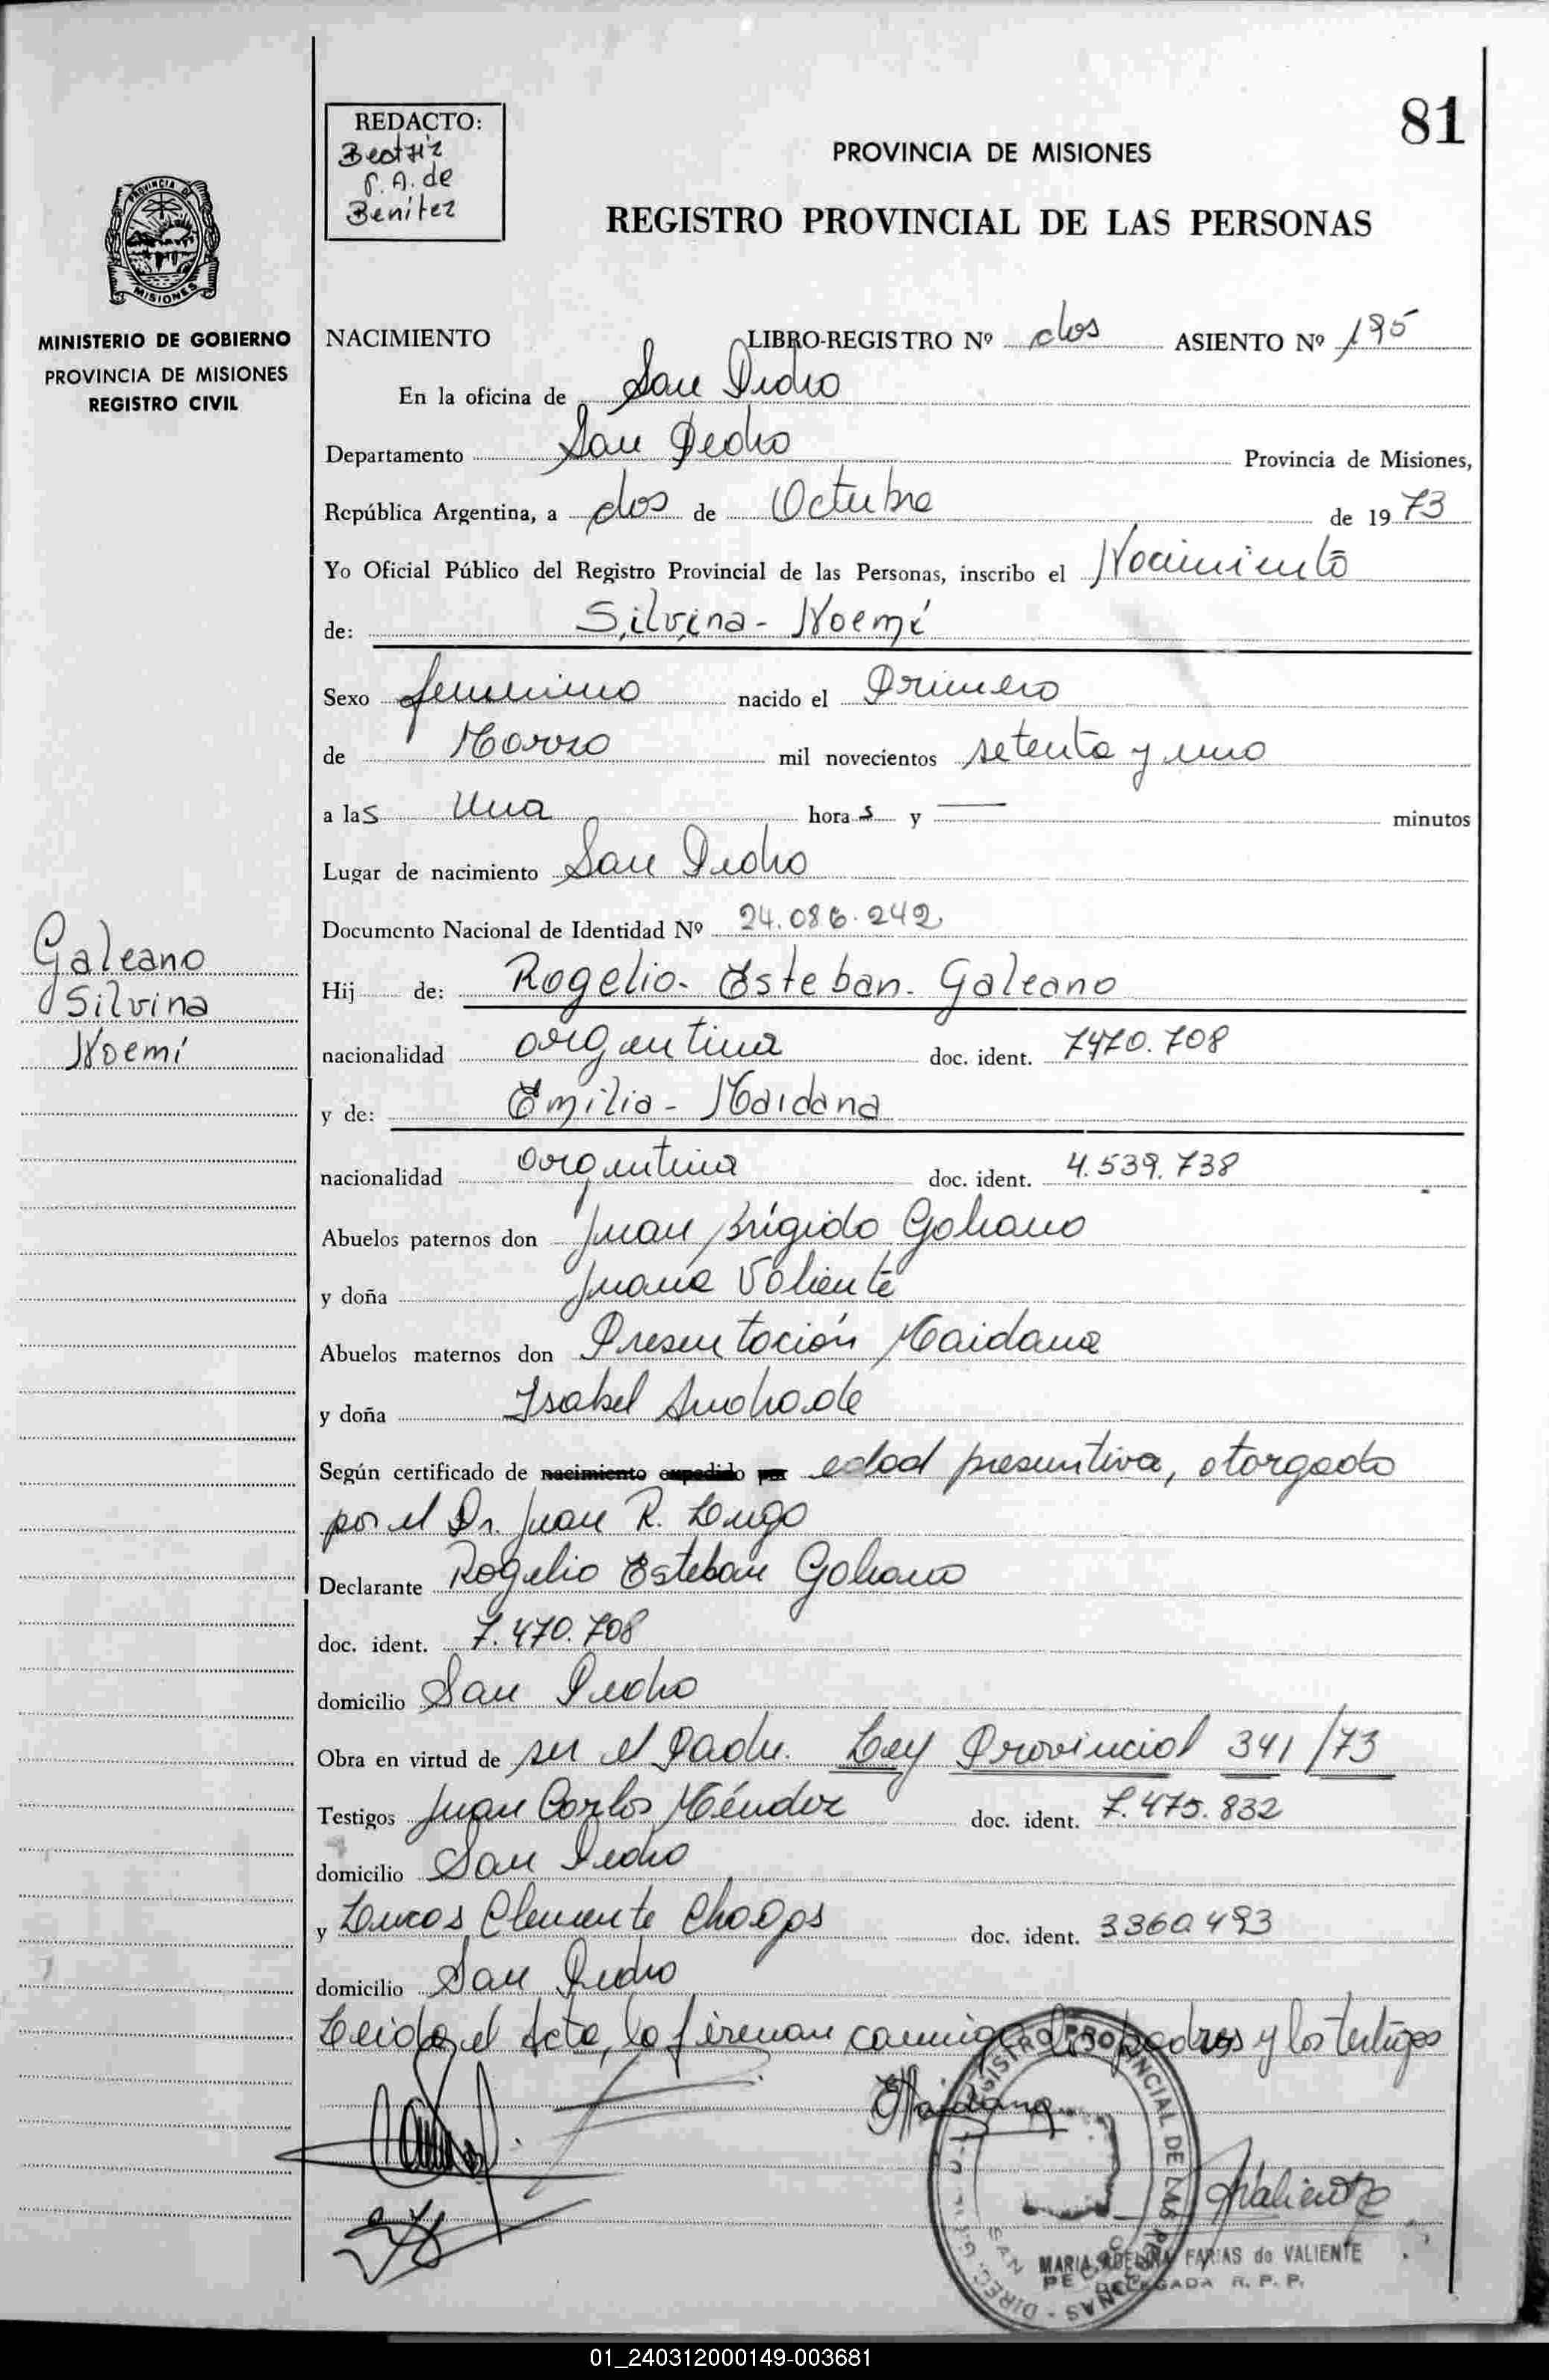 81
REDACTO:
Beatriz
A. de
Benitez
PROVINCIA DE MISIONES
REGISTRO PROVINCIAL DE LAS PERSONAS
PROVINCIA DE
MISIONES
MINISTERIO DE GOBIERNO
PROVINCIA DE MISIONES
REGISTRO CIVIL
NACIMIENTO LIBRO-REGISTRO Nº dos ASIENTO Nº 195
En la oficina de San Pedro
Departamento San Pedro Provincia de Misiones,
República Argentina, a dos de Octubre de 1973
Yo Oficial Público del Registro Provincial de las Personas, inscribo el Nacimiento
de: Silvina - Noemí
Sexo femenino nacido el Primero
de Marzo mil novecientos setenta y uno
a las Una horas y — minutos
Lugar de nacimiento San Pedro
Documento Nacional de Identidad Nº 24.086.242
Galeano
Silvina
Noemí
Hij de: Rogelio - Esteban - Galeano
nacionalidad argentina doc. ident. 7470.708
y de: Emilia - Maidana
nacionalidad argentina doc. ident. 4.539.738
Abuelos paternos don Juan Brígido Galeano
y doña Juana Valiente
Abuelos maternos don Presentación Maidana
y doña Isabel Andrade
Según certificado de nacimiento expedido por edad presuntiva, otorgado
por el Dr. Juan R. Lugo
Declarante Rogelio Esteban Galeano
doc. ident. 7.470.708
domicilio San Pedro
Obra en virtud de ser el padre. Ley Provincial 341/73
Testigos Juan Carlos Méndez doc. ident. 7.475.832
domicilio San Pedro
y Lucas Clemente doc. ident. 3360493
domicilio San Pedro
Leida el Acta, la firman conmigo los padres y los testigos
EMaidana
REGISTRO PROVINCIAL DE LAS PERSONAS
Valiente
MARIA ADELINA FARIAS de VALIENTE
DELEGADA R. P. P.
01_240312000149-003681